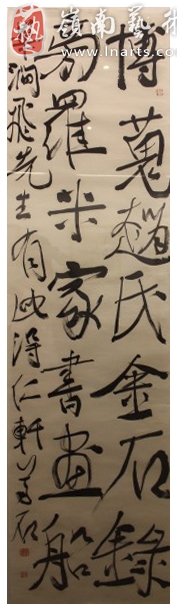 嶺南藝
www.lnarts.com
博蒐趙氏金石錄
羅米家書畫船
飛先生有此得仁軒
石